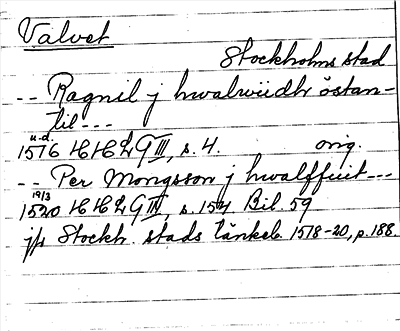 Valvet
Stockholms stad
-- Ragnil j hwalwiidh östan-
til ---
u.d.
1516 HH2 G III, s. 4. orig.
-- Per Mongsson j hwalffuit ---
19/3
1520 HH2 G IV, s. 154 Bil. 59
jfr Stockh. stads tänkeb. 1518-20, p. 188.